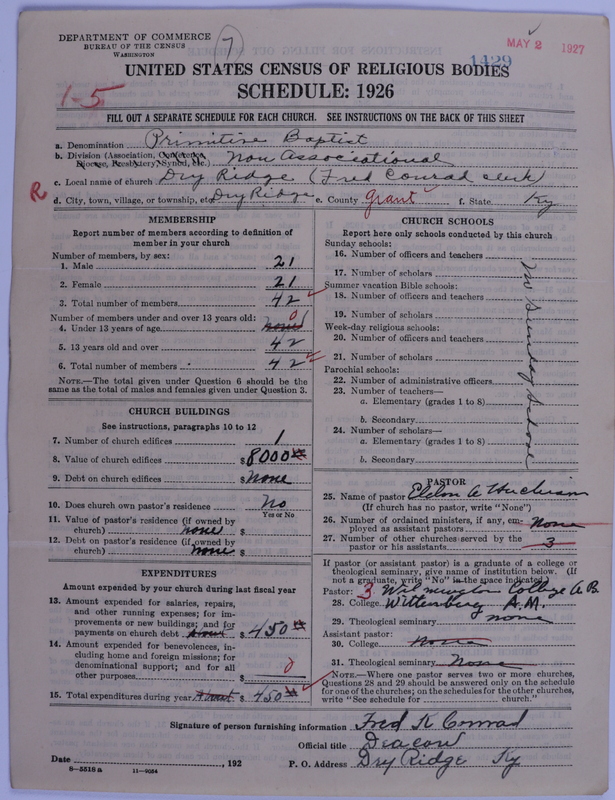 DEPARTMENT OF COMMERCE
BUREAU OF THE CENSUS
WASHINGTON
7
MAY 2 1927
1429
UNITED STATES CENSUS OF RELIGIOUS BODIES
1-5
SCHEDULE: 1926
FILL OUT A SEPARATE SCHEDULE FOR EACH CHURCH. SEE INSTRUCTIONS ON THE BACK OF THIS SHEET
a. Denomination Primitive Baptist
b. Division (Association, Conference, Diocese, Presbytery, Synod, etc.) Non Associational
c. Local name of church Dry Ridge (Fred Conrad clerk)
R d. City, town, village, or township, etc. Dry Ridge e. County Grant f. State Ky
MEMBERSHIP
Report number of members according to definition of
member in your church
Number of members, by sex:
1. Male 21
2. Female 21
3. Total number of members 42
Number of members under and over 13 years old:
4. Under 13 years of age none 0
5. 13 years old and over 42
6. Total number of members 42
NOTE.—The total given under Question 6 should be the
same as the total of males and females given under Question 3.
CHURCH BUILDINGS
See instructions, paragraphs 10 to 12
7. Number of church edifices 1
8. Value of church edifices $8000
9. Debt on church edifices $none
10. Does church own pastor's residence No
Yes or No
11. Value of pastor's residence (if owned by
church) none $
12. Debt on pastor's residence (if owned by
church) none $
EXPENDITURES
Amount expended by your church during last fiscal year
13. Amount expended for salaries, repairs,
and other running expenses; for im-
provements or new buildings; and for
payments on church debt $450
14. Amount expended for benevolences, in-
cluding home and foreign missions; for
denominational support; and for all
other purposes $ 0
15. Total expenditures during year $450
CHURCH SCHOOLS
Report here only schools conducted by this church
Sunday schools:
16. Number of officers and teachers
17. Number of scholars
Summer vacation Bible schools:
18. Number of officers and teachers
19. Number of scholars
Week-day religious schools:
20. Number of officers and teachers
21. Number of scholars
Parochial schools:
22. Number of administrative officers
23. Number of teachers—
a. Elementary (grades 1 to 8)
b. Secondary
24. Number of scholars—
a. Elementary (grades 1 to 8)
b. Secondary
no Sunday School
PASTOR
25. Name of pastor Eldon A
(If church has no pastor, write "None")
26. Number of ordained ministers, if any, em-
ployed as assistant pastors none
27. Number of other churches served by the
pastor or his assistants 3
If pastor (or assistant pastor) is a graduate of a college or
theological seminary, give name of institution below. (If
not a graduate, write "No" in the space indicated.)
Pastor: 3 Wilmington College A.B.
28. College Wittenberg A.M.
29. Theological seminary none
Assistant pastor:
30. College none
31. Theological seminary None
NOTE.—Where one pastor serves two or more churches,
Questions 28 and 29 should be answered only on the schedule
for one of the churches; on the schedules for the other churches,
write "See schedule for church."
Signature of person furnishing information Fred K Conrad
Official title Deacon
Date , 192 P. O. Address Dry Ridge Ky
8—5518a 11—9084